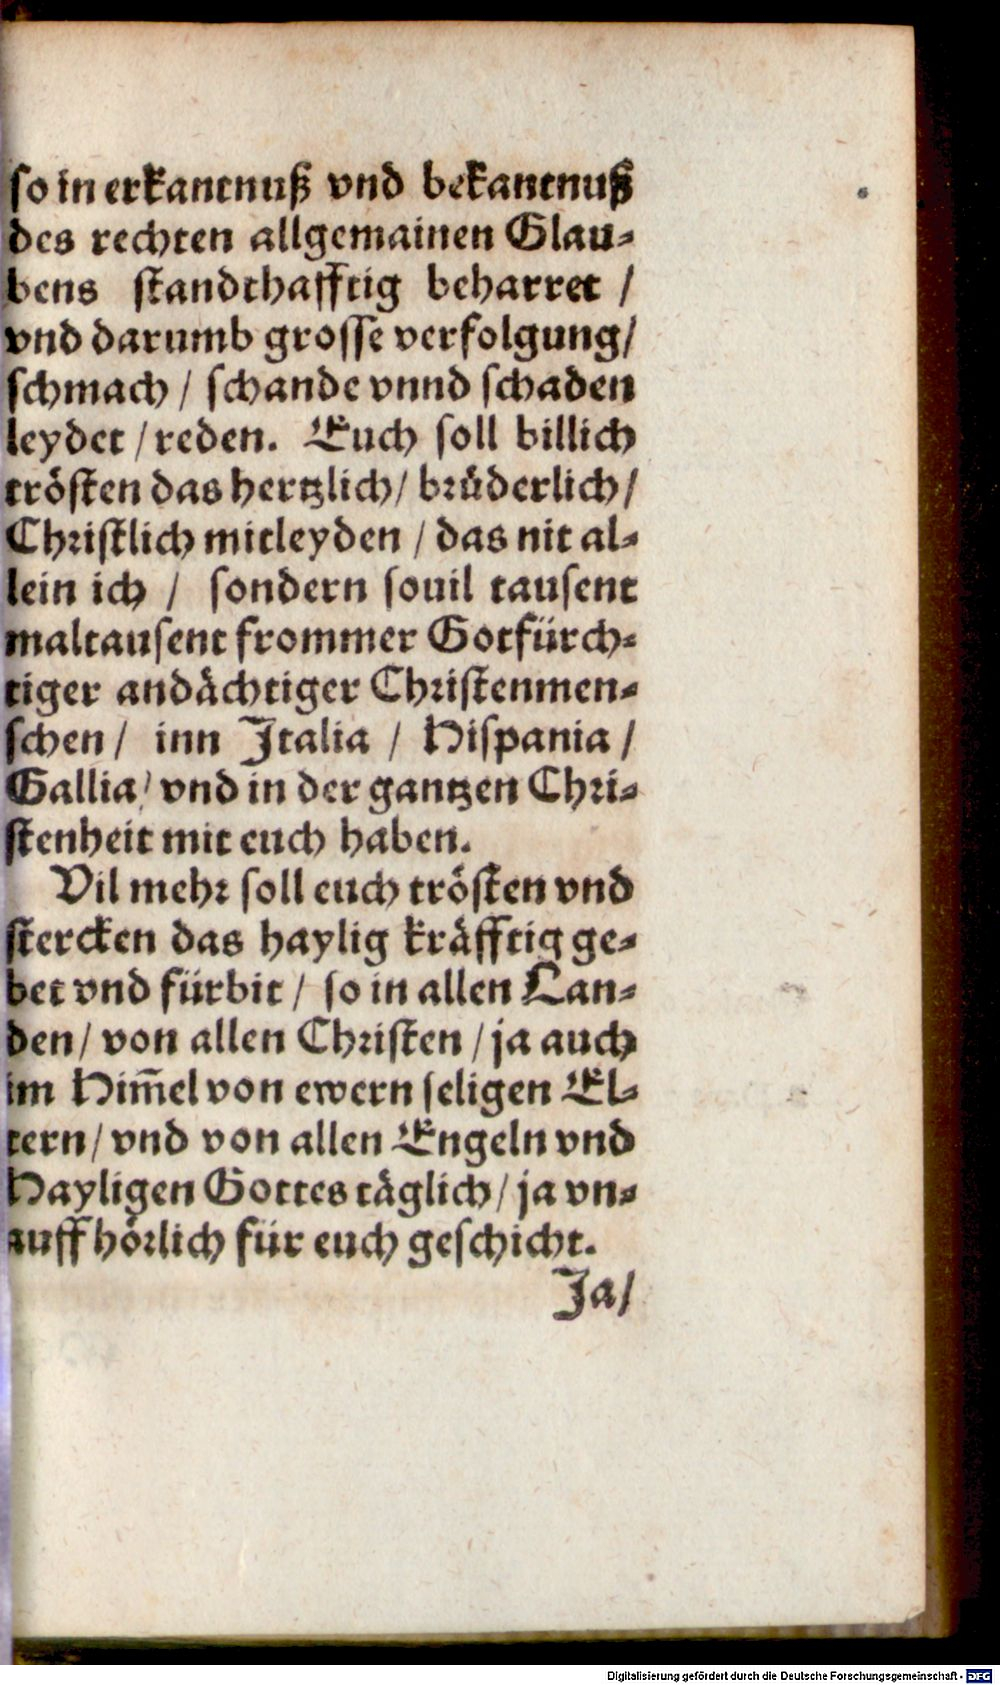 so in erkantnuß vnd bekantnuß
des rechten allgemainen Glau⸗
bens standthafftig beharret /
vnd darumb grosse verfolgung/
schmach / schande vnnd schaden
leydet / reden. Euch soll billich
trösten das hertzlich/ brüderlich/
Christlich mitleyden / das nit al⸗
lein ich / sondern souil tausent
maltausent frommer Gotfürch⸗
tiger andächtiger Christenmen⸗
schen / inn Italia / Hispania /
Gallia/ vnd in der gantzen Chri⸗
stenheit mit euch haben.
Vil mehr soll euch trösten vnd
stercken das haylig kräfftig ge⸗
bet vnd fürbit / so in allen Lan⸗
den/ von allen Christen / ja auch
im Him̃el von ewern seligen El⸗
tern/ vnd von allen Engeln vnd
Hayligen Gottes täglich/ ja vn⸗
auff hörlich für euch geschicht.
Ja/
Digitalisierung gefördert durch die Deutsche Forschungsgemeinschaft - DFG